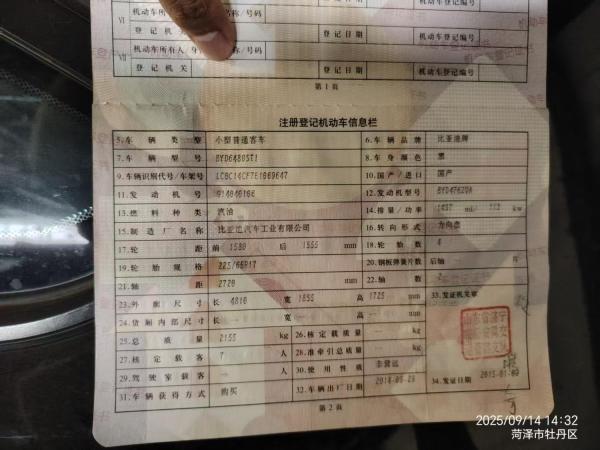 VI 机动车所有人/身份证明名称/号码
登记机关 登记日期 机动车登记编号
VII 机动车所有人/身份证明名称/号码
登记机关 登记日期 机动车登记编号
第1页
注册登记机动车信息栏
5.车辆类型 小型普通客车 6.车辆品牌 比亚迪牌
7.车辆型号 BYD6480ST1 8.车身颜色 黑
9.车辆识别代号/车架号 10.国产/进口 国产
11.发动机号 12.发动机型号
13.燃料种类 汽油 14.排量/功率 ml/ kw
15.制造厂名称 比亚迪汽车工业有限公司 16.转向形式 方向盘
17.轮距 前 1580 后 1555 mm 18.轮胎数 4
19.轮胎规格 225/65R17 20.钢板弹簧片数 后轴 片
21.轴距 2720 mm 22.轴数 2
23.外廓尺寸 长 4810 宽 1855 高 1725 mm 33.发证机关章
24.货厢内部尺寸 长 宽 高 mm
25.总质量 2155 kg 26.核定载质量 kg
27.核定载客 7 人 28.准牵引总质量 kg
29.驾驶室载客 人 30.使用性质 非营运
31.车辆获得方式 购买 32.车辆出厂日期 34.发证日期
第2页
2025/09/14 14:32
菏泽市牡丹区